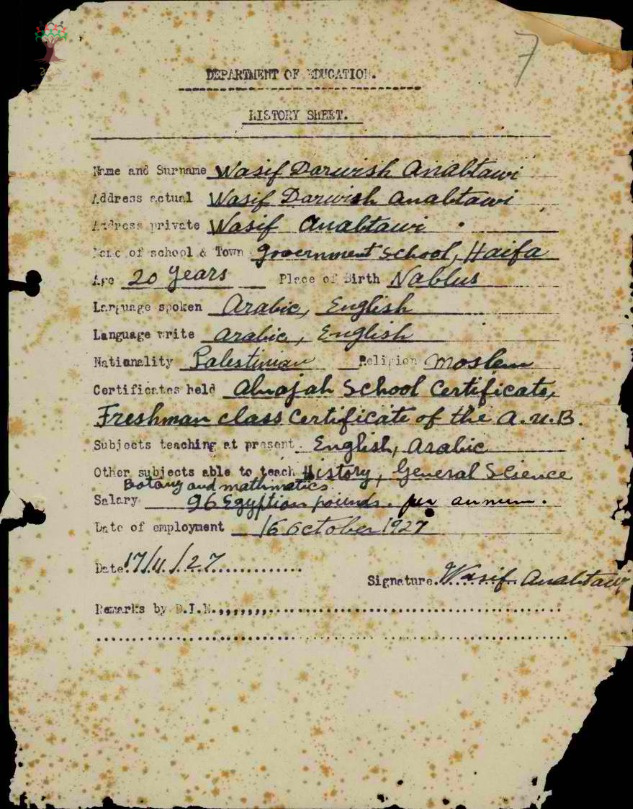 7
DEPARTMENT OF EDUCATION.
HISTORY SHEET.
Name and Surname Wasif Darwish Anabtawi
Address actual Wasif Darwish Anabtawi
Address private Wasif Anabtawi
Name of school & Town Government School, Haifa
Age 20 years Place of Birth Nablus
Language spoken Arabic, English
Language write Arabic, English
Nationality Palestinian Religion Moslem
Certificates held Alnajah School Certificate,
Freshman class Certificate of the A.U.B.
Subjects teaching at present. English, Arabic
Other subjects able to teach History, General Science
Botany and mathmatics.
Salary 96 Egyption pounds. per annum.
Date of employment 16 October 1927
Date 17/11/27
Signature Wasif Anabtawi
Remarks by D.I.